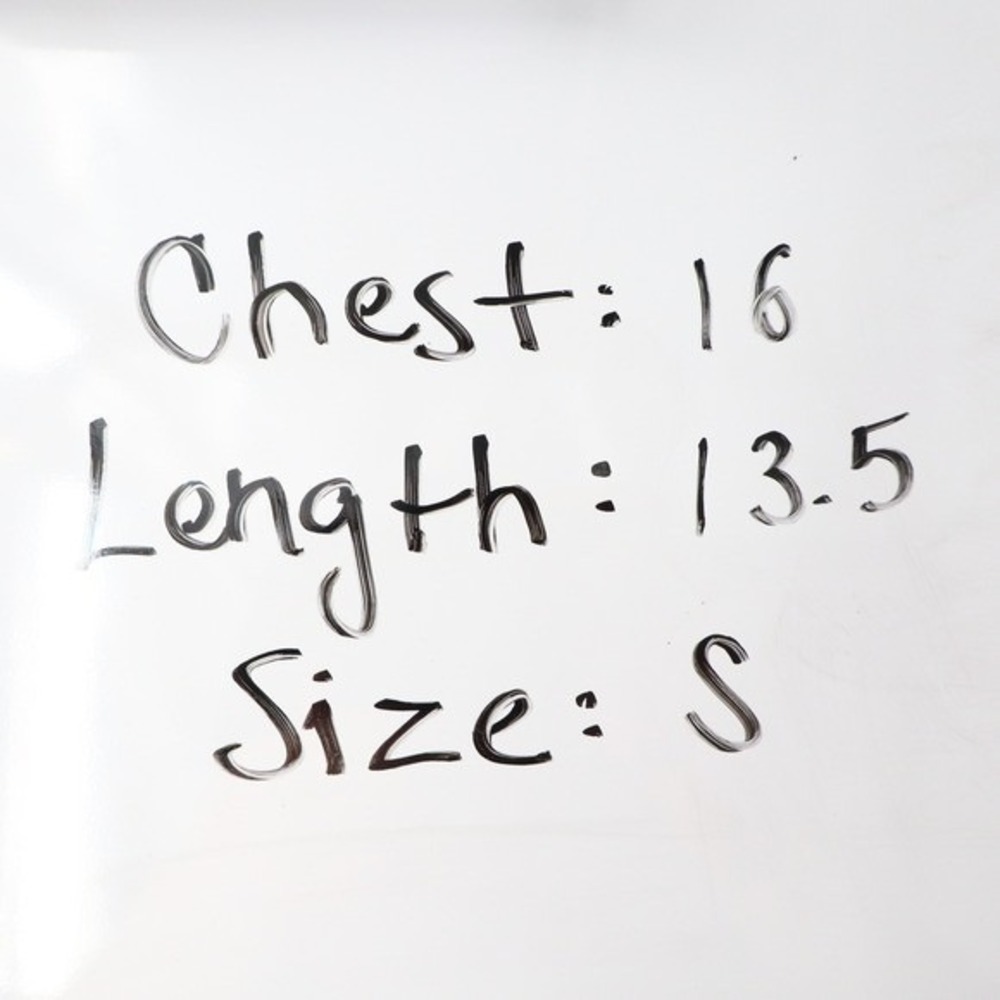 Chest: 16
Length: 13.5
Size: S